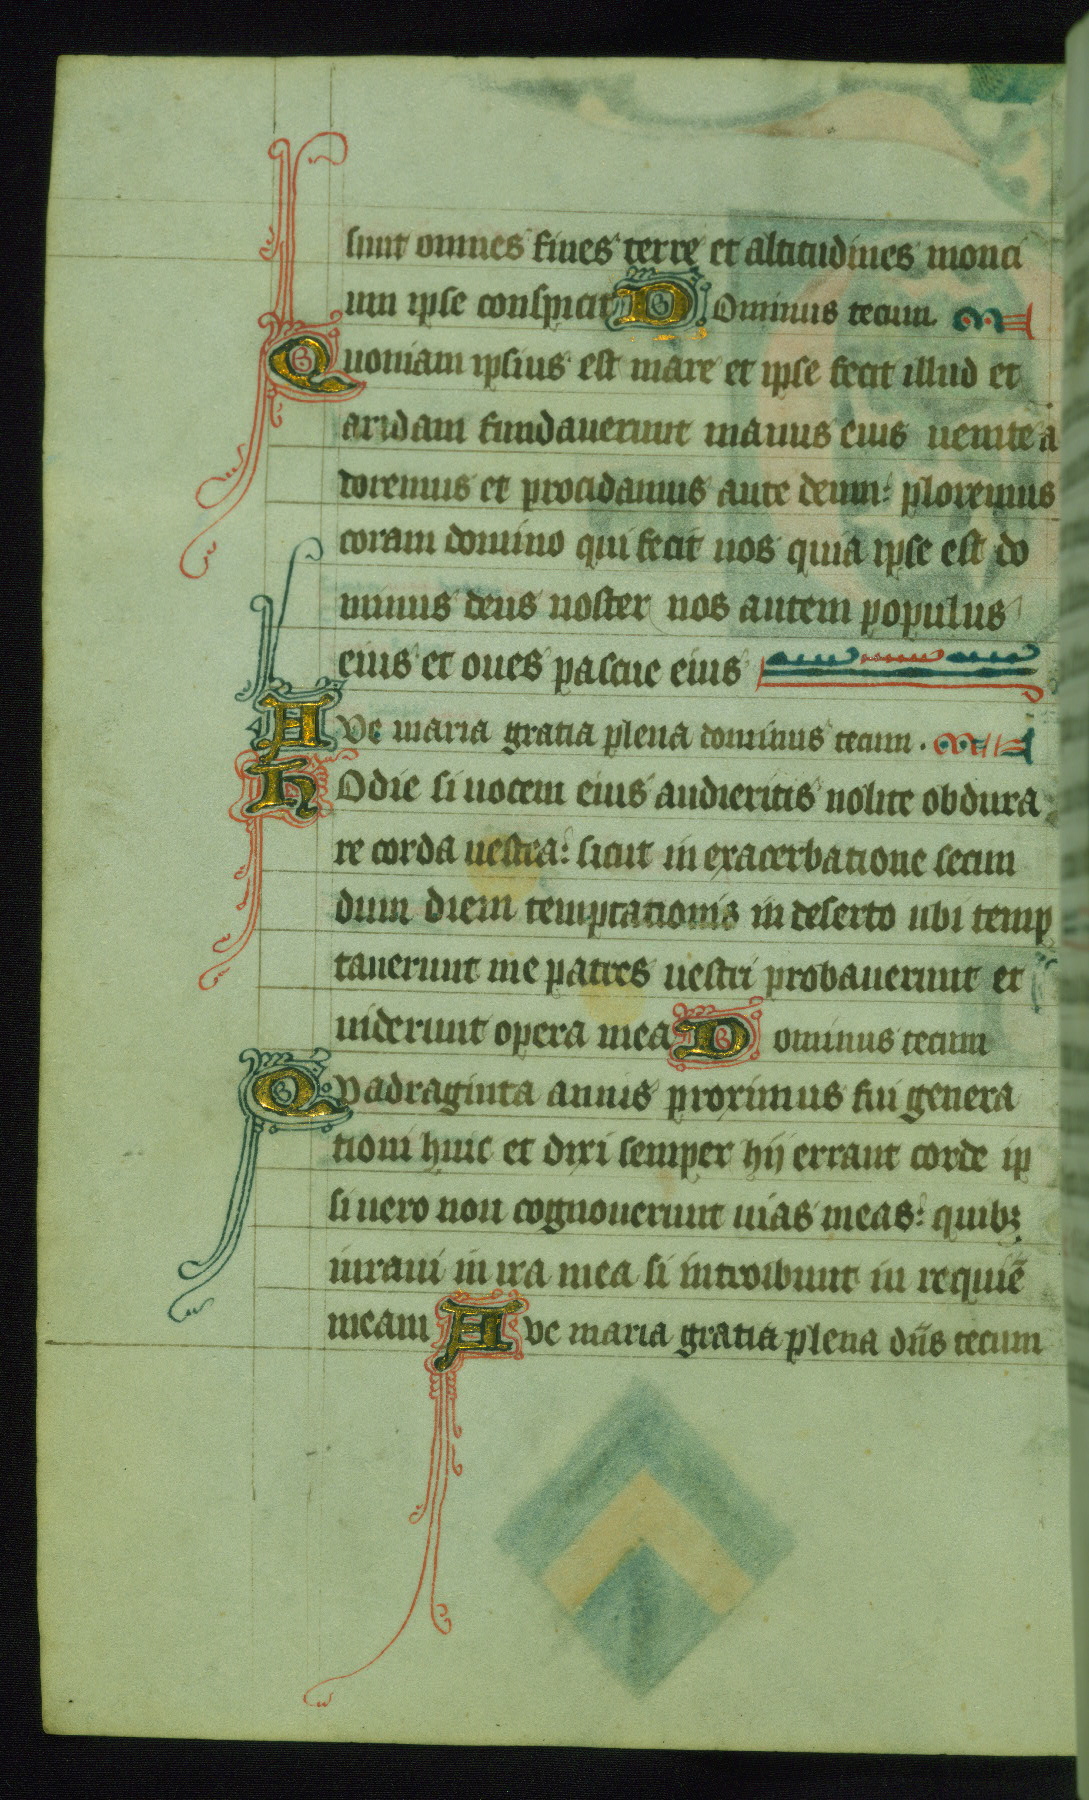 sunt omnes fines terre et altitudines monti
um ipse conspicit Dominus tecum.
Quoniam ipsius est mare et ipse fecit illud et
aridam fundauerunt manus eius uenite a
doremus et procidamus ante deum: ploremus
coram domino qui fecit nos quia ipse est do
minus deus noster nos autem populus
eius et oues pascue eius
Aue maria gratia plena dominus tecum.
hOdie si uocem eius audieritis nolite obdura
re corda uestra: sicut in exacerbatione secun
dum diem temptationis in deserto ubi temp
tauerunt me patres uestri probauerunt et
uiderunt opera mea Dominus tecum
Quadraginta annis proximus fui genera
tioni huic et dixi semper hij errant corde ip
si uero non cognouerunt uias meas: quibꝫ
iuraui in ira mea si introibunt in requiē
meam Aue maria gratia plena dn̄s tecum